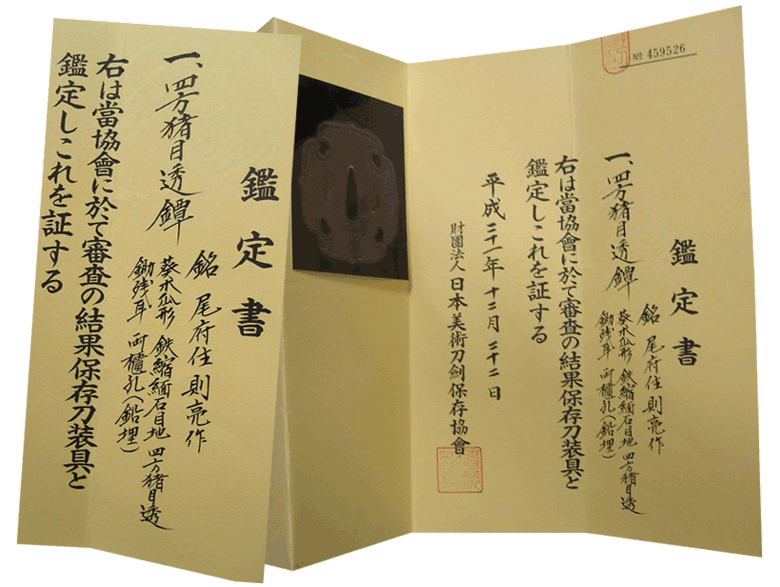 № 459526
鑑定書
一、四方猪目透鐔
銘 尾府住則亮作
葵木瓜形 鉄縮緬石目地 四方猪目透
鋤残耳 両櫃孔(鉛埋)
右は當協會に於て審査の結果保存刀装具と
鑑定しこれを証する
平成二十一年 十二月 二十二日
財團法人 日本美術刀劍保存協會
鑑定書
一、四方猪目透鐔
銘 尾府住則亮作
葵木瓜形 鉄縮緬石目地 四方猪目透
鋤残耳 両櫃孔(鉛埋)
右は當協會に於て審査の結果保存刀装具と
鑑定しこれを証する